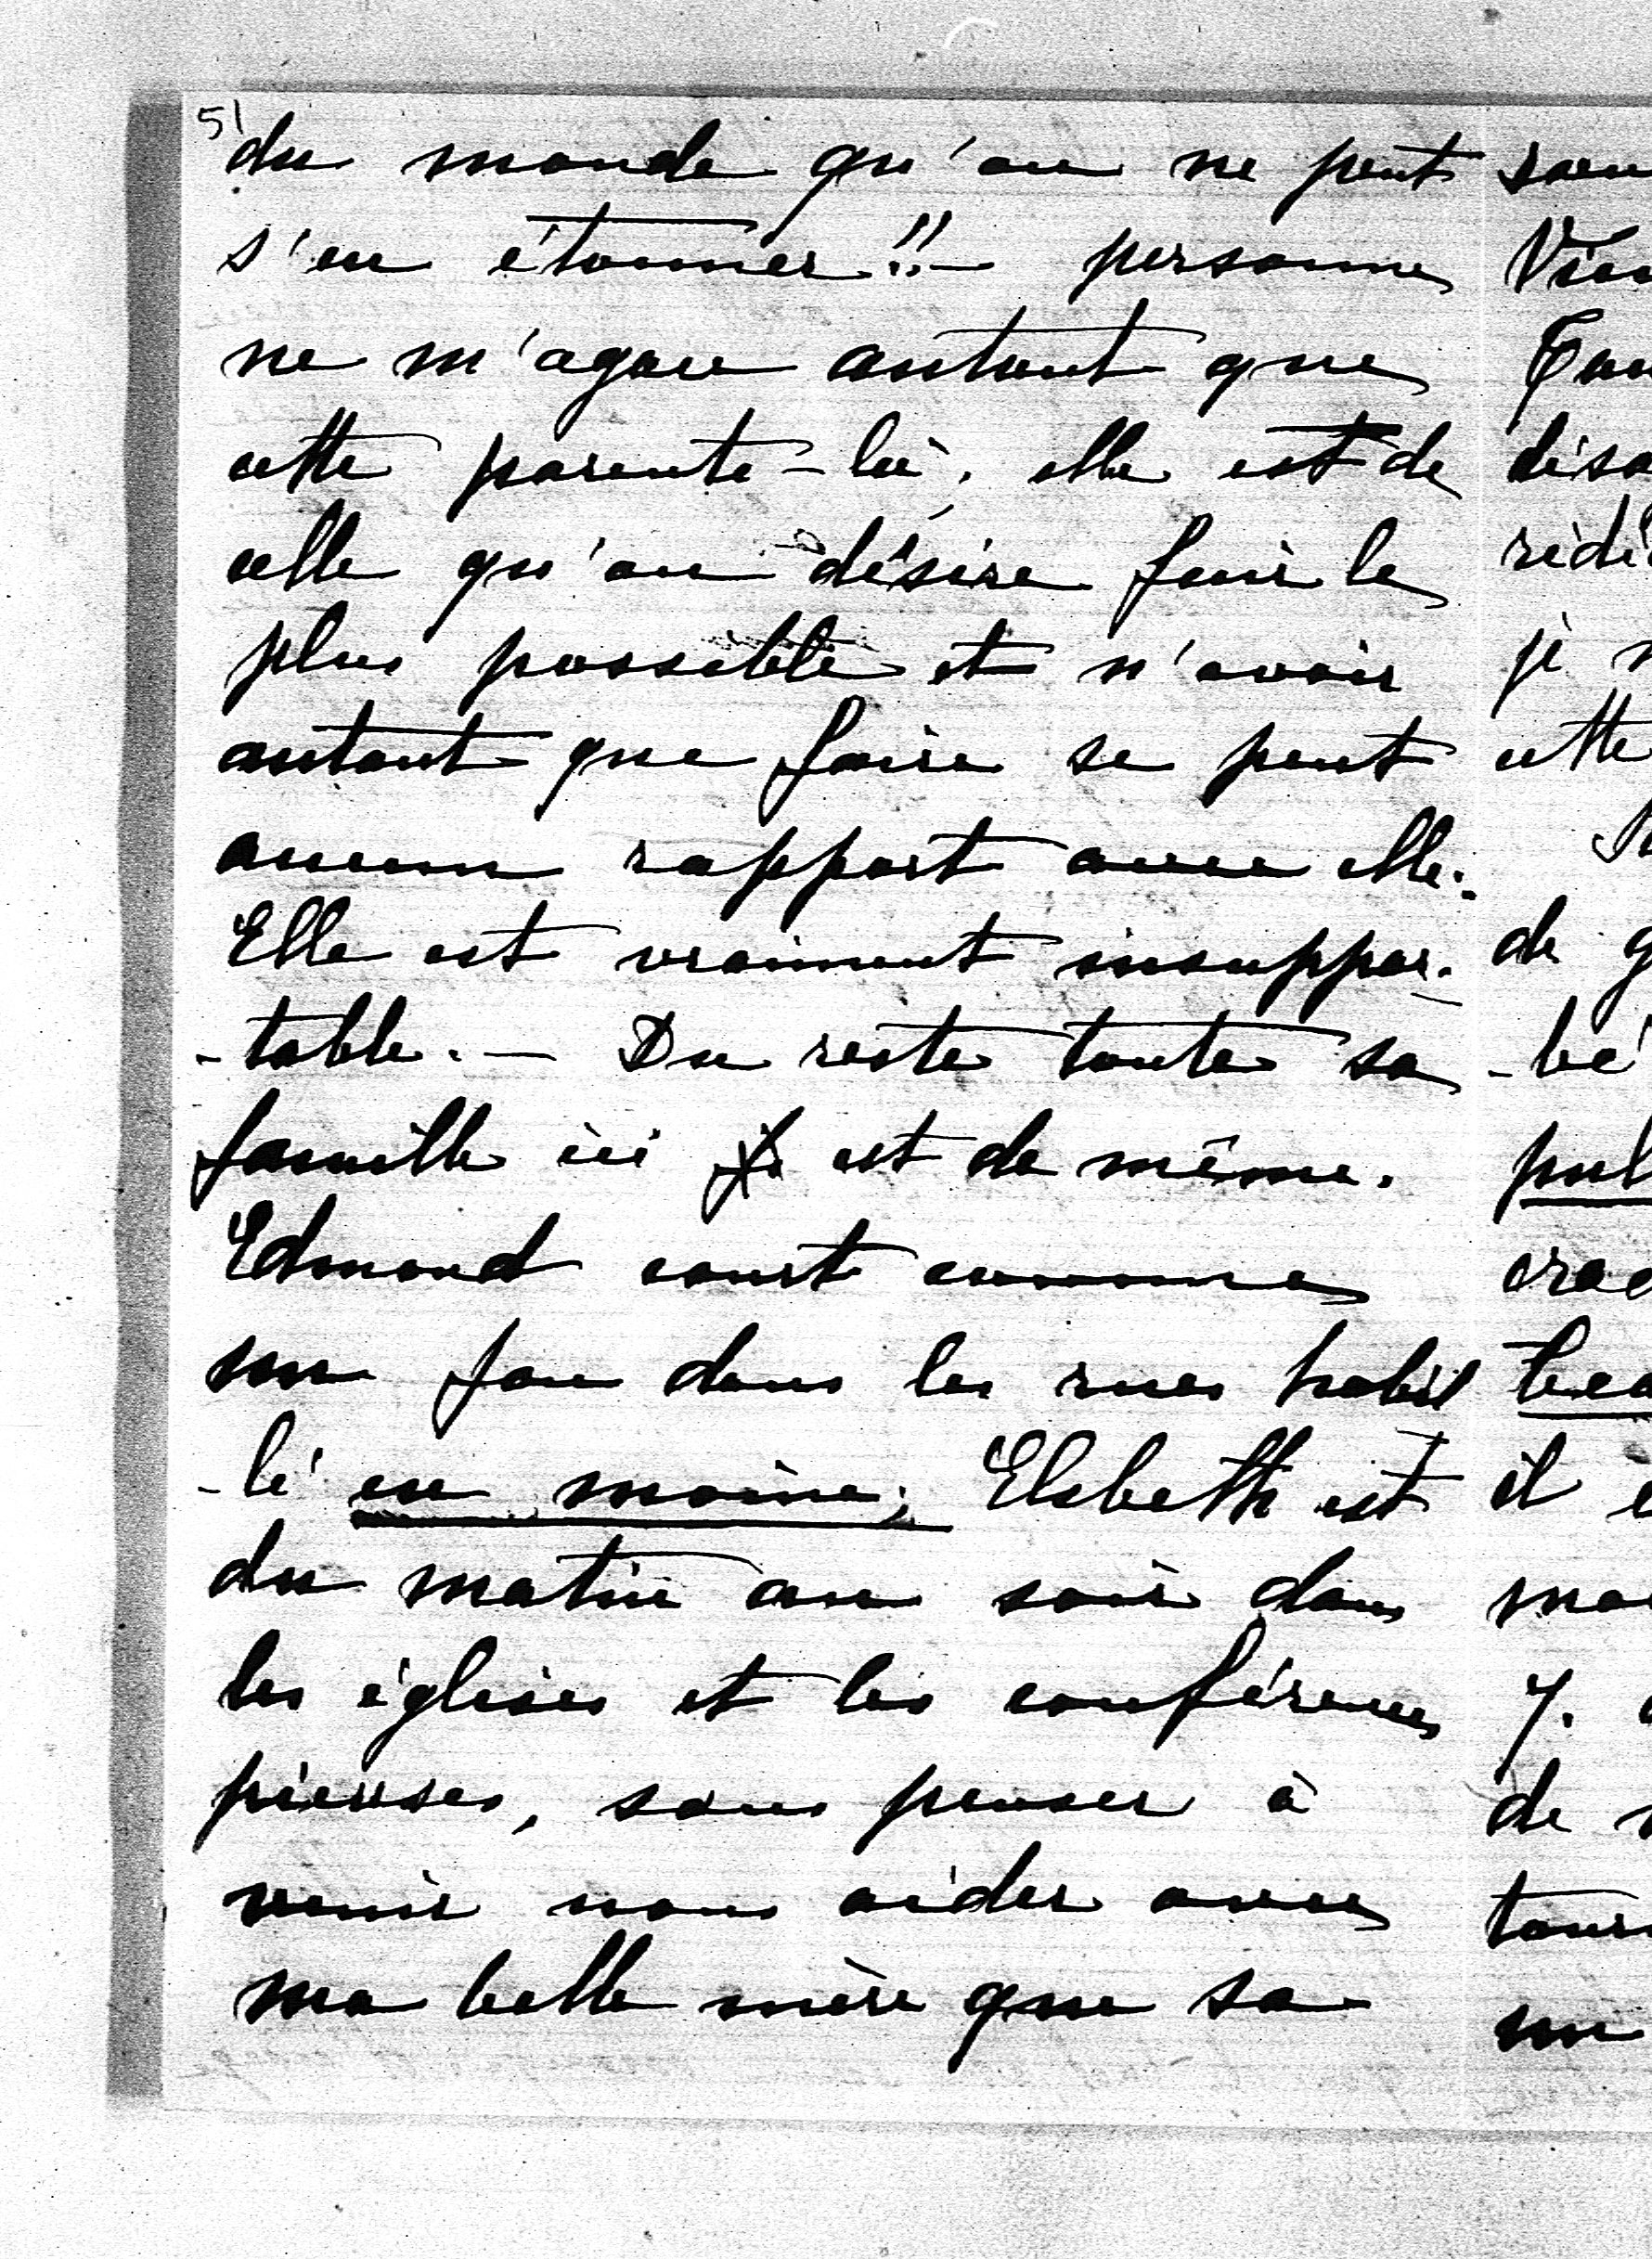 51
du monde qu'on ne peut
s'en étonner!! — personne
ne m'agace autant que
cette parente-là; elle est de
celle qu'on désire fuir le
plus possible et n'avoir
autant que faire se peut
aucun rapport avec elle.
Elle est vraiment insuppor-
-table. — Du reste toute sa
famille ici est de même.
Edmond court comme
un fou dans les rues habil
-lé en moine; Elsbeth est
du matin au soir dans
les églises et les conférences
pieuses, sans penser à
venir nous aider avec
ma belle mère que sa